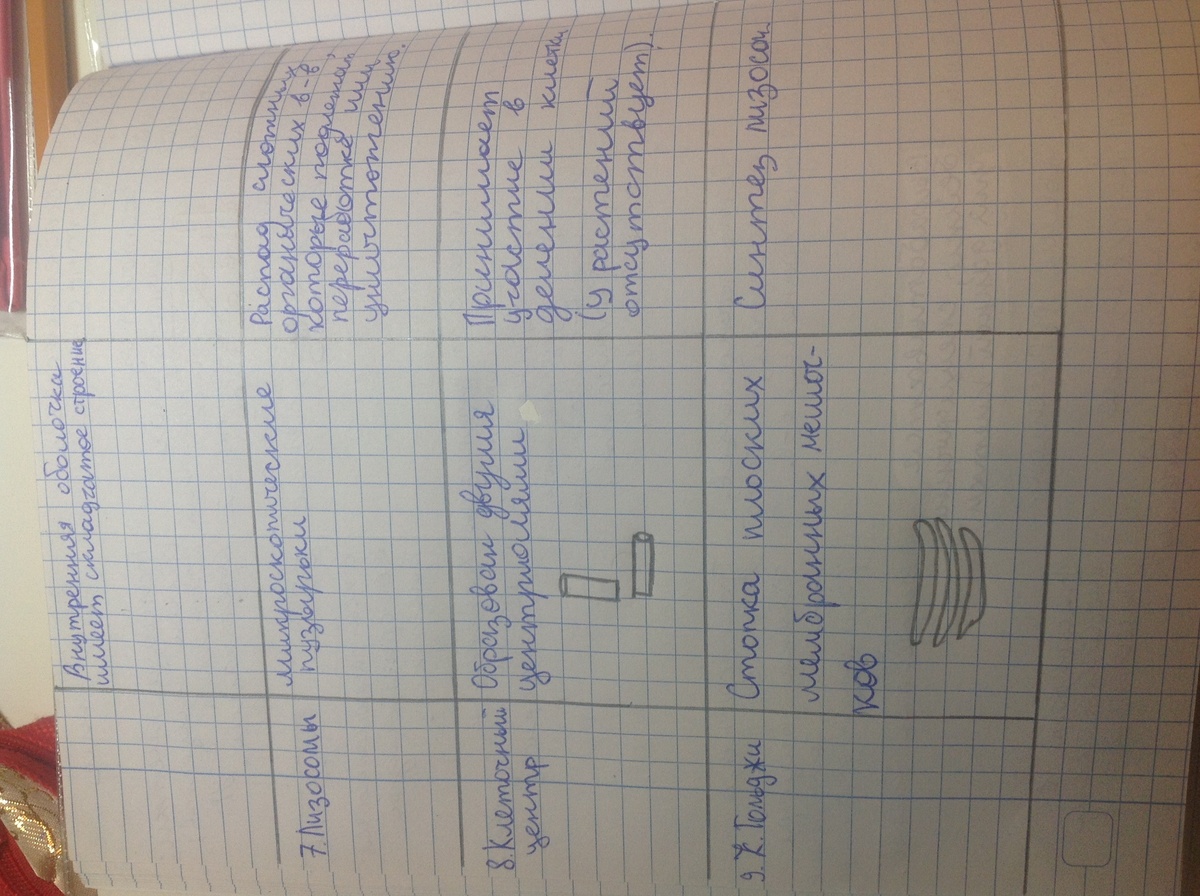 Внутренняя оболочка
имеет складчатое строение
7. Лизосомы
микроскопические
пузырьки
Распад сложных
органических в-в
которые подлежат
переработке или
уничтожению.
8. Клеточный
центр
Образован двумя
центриолями
Принимает
участие в
делении клетки
(у растений
отсутствует).
9. К. Гольджи
Стопка плоских
мембранных мешоч-
ков
Синтез лизосом.